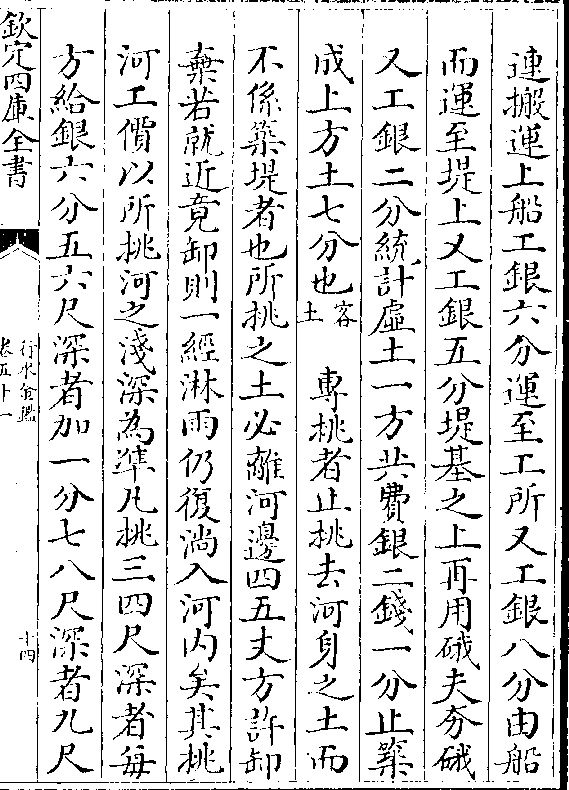 連搬運上船工銀六分運至工所又工銀八分由船
而運至堤上又工銀五分堤基之上再用硪夫夯硪
又工銀二分統計虛土一方共費銀二錢一分止築
成上方土七分也客土　專挑者止挑去河身之土而
不係築堤者也所挑之土必離河邊四五丈方許卸
棄若就近竟卸則一經淋雨仍復淌入河内矣其挑
河工價以所挑河之淺深為準凡挑三四尺深者每
方給銀六分五六尺深者加一分七八尺深者九尺
欽定四庫全書
行水金鑑
卷五十一
十四